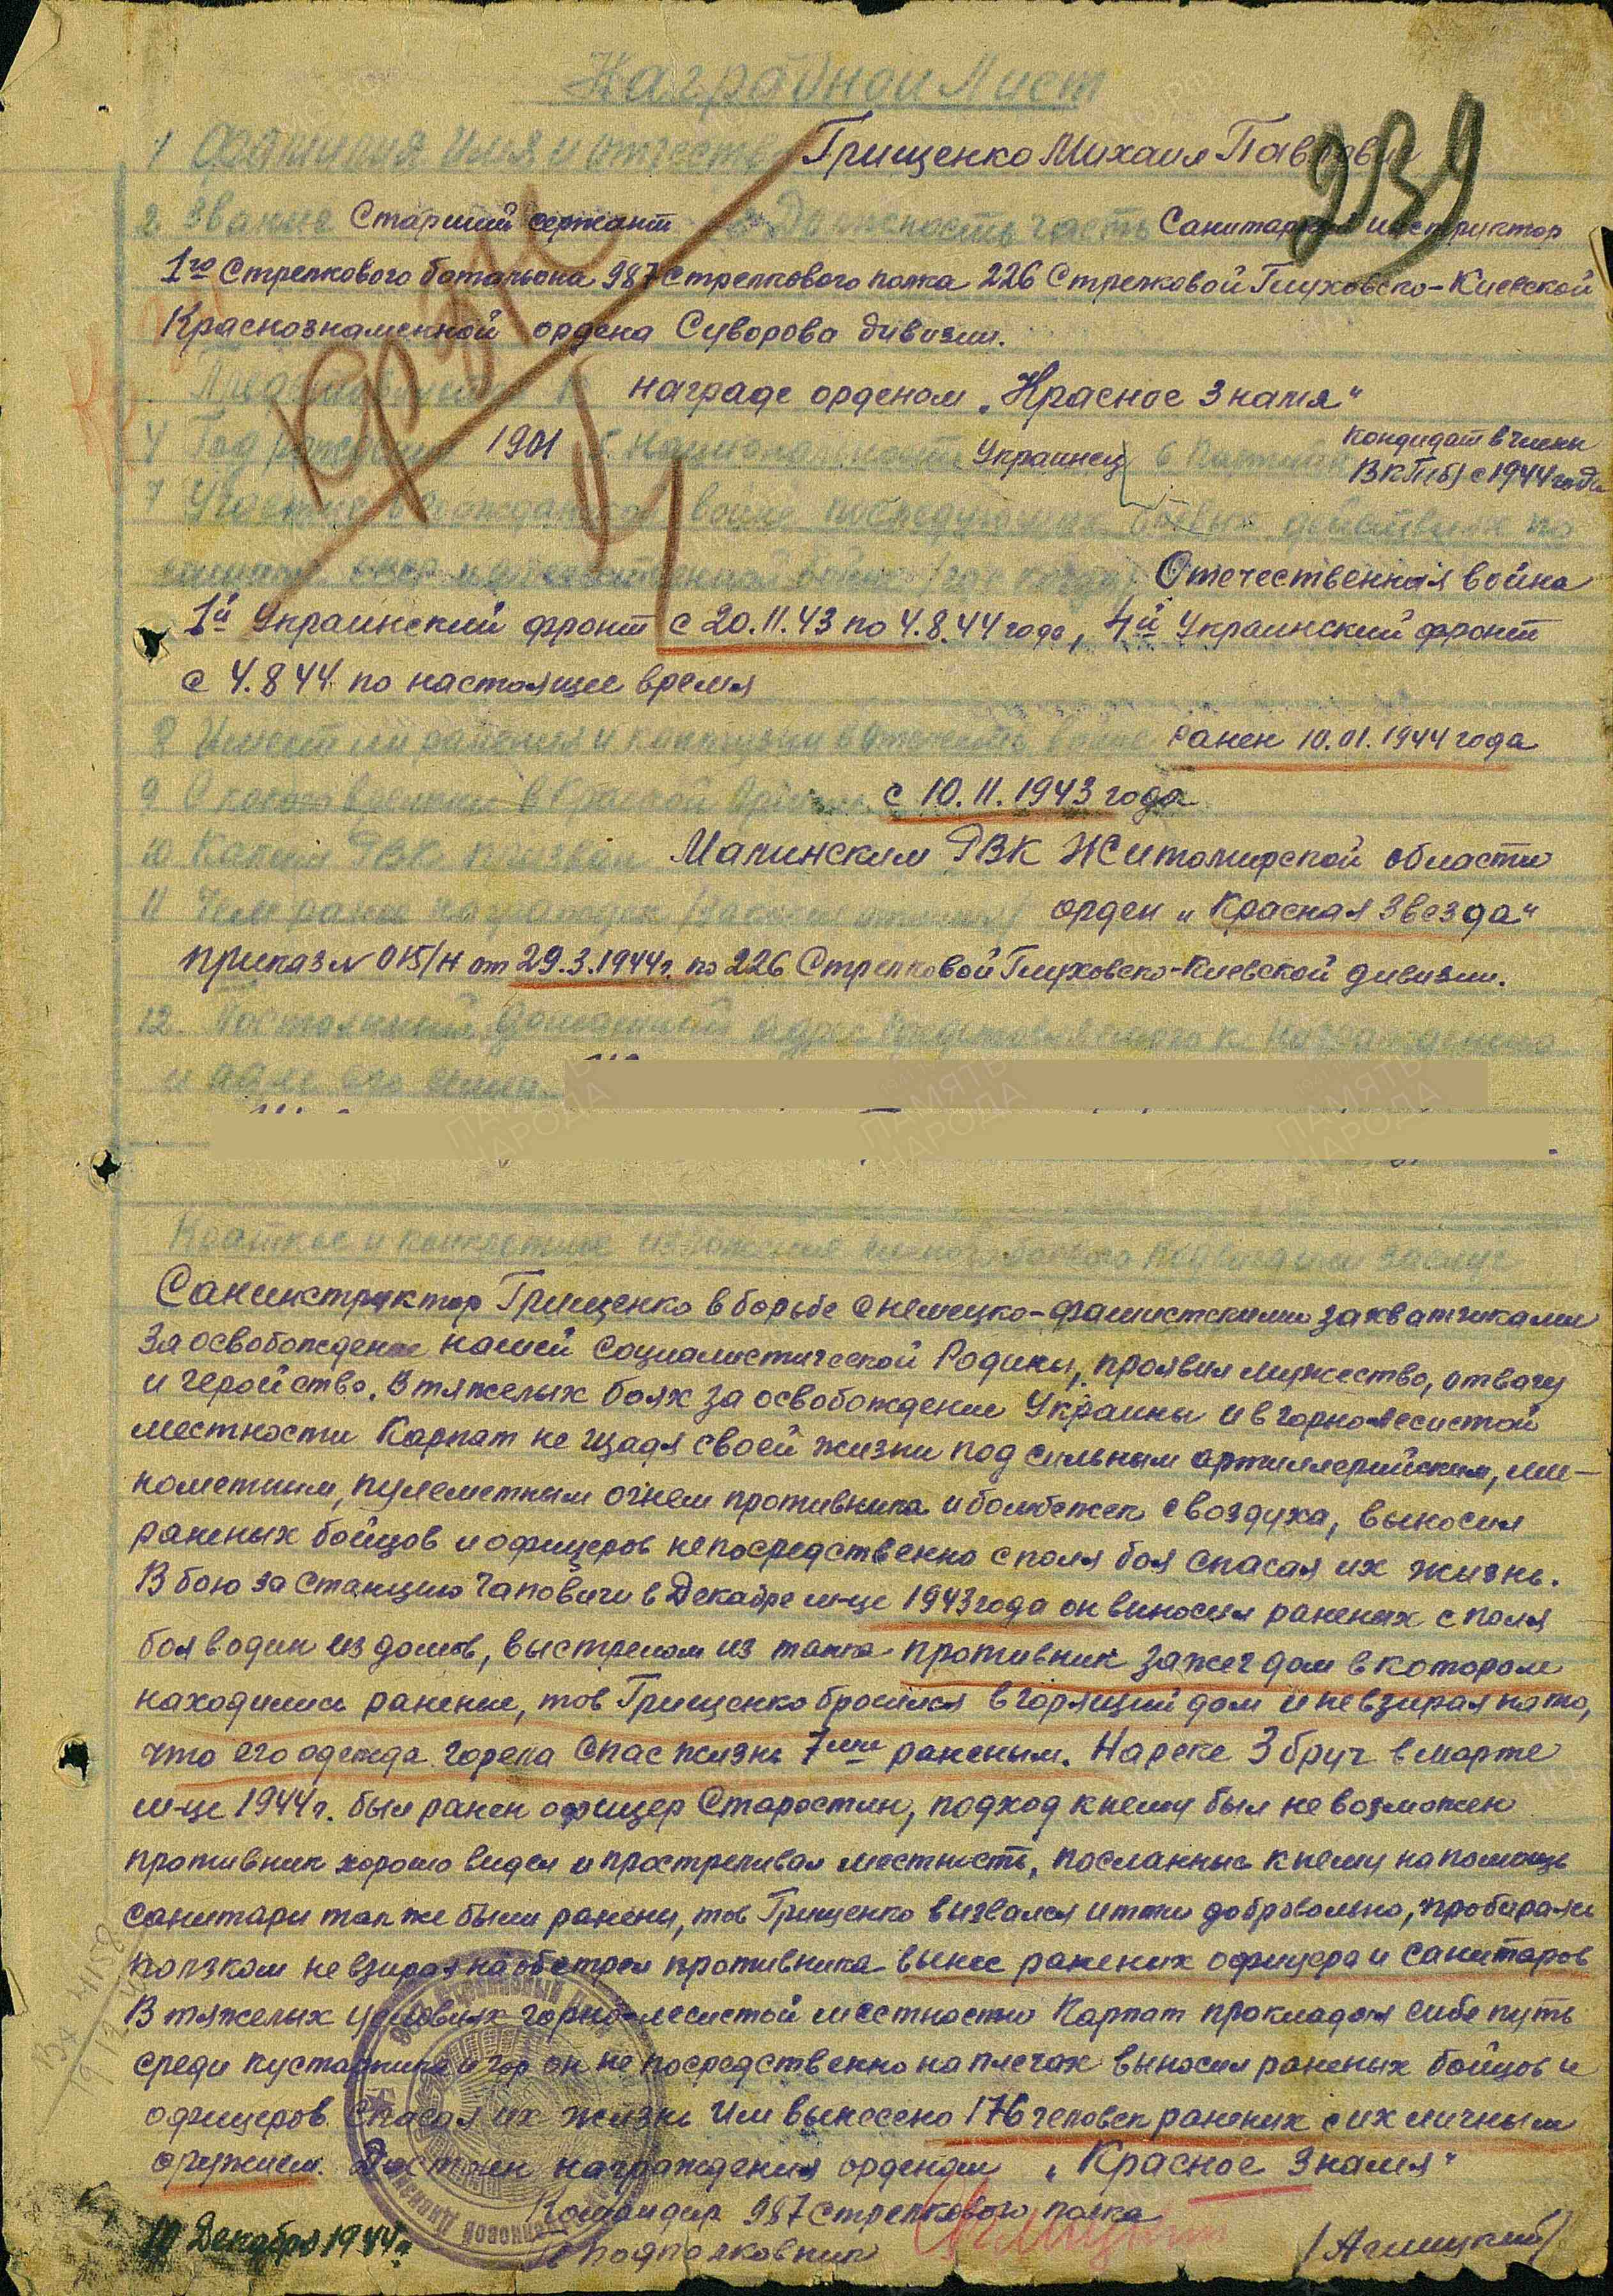 Наградной Лист
239
1 Фамилия Имя и отчество Грищенко Михаил Павлович
2. Звание Старший сержант Должность часть Санитарный инструктор
1го Стрелкового батальона 987 Стрелкового полка 226 Стрелковой Глуховско-Киевской
Краснознаменной ордена Суворова дивизии.
Представляется к награде орденом „Красное Знамя"
4 Год рождения 1901 5. Национальность Украинец 6 Партийн кандидат в члены
ВКП(б) с 1944 года
7 Участие в гражданской войне последующих боевых действиях по
Отечественная война
1й Украинский фронт с 20.11.43 по 4.8.44 года, 4й Украинский фронт
с 4.8 44. по настоящее время
8 Имеет ли ранения и контузии в отечеств. войне ранен 10.01.1944 года
9 С какого времени в Красной Армии с 10.11.1943 года
10 Каким РВК призван Малинским РВК Житомирской области
11 Чем ранее награжден орден „Красная Звезда"
приказ № 015/н от 29.3.1944г. по 226 Стрелковой Глуховско-Киевской дивизии.
12. Постоянный домашний адрес представляемого к награждению
и адрес его семьи
Краткое и конкретное изложение личного боевого подвига или заслуг
Санинструктор Грищенко в борьбе с немецко-фашистскими захватчиками
за освобождение нашей социалистической Родины, проявил мужество, отвагу
и геройство. В тяжелых боях за освобождение Украины и в горно-лесистой
местности Карпат не щадя своей жизни под сильным артиллерийским, ми-
нометним, пулеметным огнем противника и бомбежек с воздуха, выносил
раненых бойцов и офицеров непосредственно с поля боя спасая их жизнь.
В бою за станцию Чаповичи в Декабре м-це 1943 года он виносил раненых с поля
боя в один из домов, выстрелом из танка противник зажег дом в котором
находились ранение, тов Грищенко бросился в горящий дом и не взирая на то,
что его одежда горела спас жизнь 7ми раненым. На реке Збруч в марте
м-це 1944г. был ранен офицер Старостин, подход к нему был не возможен
противник хорошо видел и простреливал местность, посланные к нему на помощь
санитари так же были ранени, тов Грищенко визвался итти добровольно, пробираясь
ползком не взирая на обстрел противника вынес раненых офицера и санитаров
В тяжелых условиях горно-лесистой местности Карпат прокладая себе путь
среди кустарника и гор он не посредственно на плечах выносил раненых бойцов и
офицеров спасая их жизнь Им вынесено 176 человек раненых с их личным
оружием. Достоин награждения орденом „Красное Знамя"
Командир 987 стрелкового полка
Подполковник
10 Декабря 1944г.